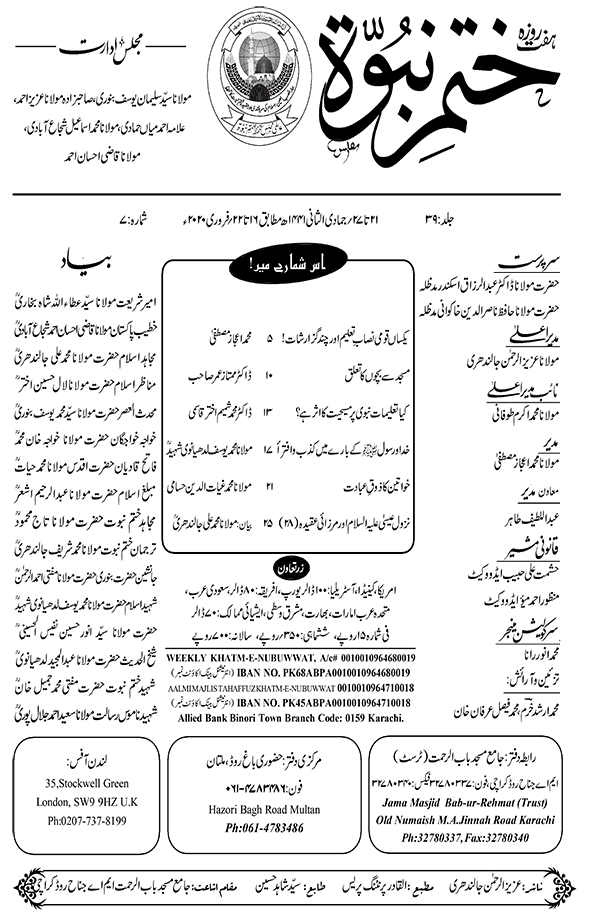 ہفت روزہ
ختم نبوۃ
مجلس ادارت
مولانا سیّد سلیمان یوسف بنوری، صاحبزادہ مولانا عزیز احمد،
علامہ احمد میاں حمادی، مولانا محمد اسماعیل شجاع آبادی،
مولانا قاضی احسان احمد
جلد: ۳۹ ۲۱ تا ۲۷/جمادی الثانی ۱۴۴۱ھ مطابق ۱۶ تا ۲۲/فروری ۲۰۲۰ء شمارہ: ۷
سرپرست
حضرت مولانا ڈاکٹر عبدالرزاق اسکندر مدظلہ
حضرت مولانا حافظ ناصر الدین خاکوانی مدظلہ
مدیر اعلیٰ
مولانا عزیز الرحمٰن جالندھری
نائب مدیر اعلیٰ
مولانا محمد اکرم طوفانی
مدیر
مولانا محمد اعجاز مصطفیٰ
معاون مدیر
عبداللطیف طاہر
قانونی مشیر
حشمت علی حبیب ایڈووکیٹ
منظور احمد مئو ایڈووکیٹ
سرکولیشن منیجر
محمد انور رانا
تزئین و آرائش:
محمد ارشد خرم، محمد فیصل عرفان خان
اس شمارے میں!
یکساں قومی نصاب تعلیم اور چند گزارشات! ۵ محمد اعجاز مصطفیٰ
مسجد سے بچوں کا تعلق ۱۰ ڈاکٹر ممتاز عمر صاحب
کیا تعلیمات نبوی پر مسیحیت کا اثر ہے؟ ۱۳ ڈاکٹر محمد شمیم اختر قاسمی
خدا و رسول ﷺ کے بارے میں کذب و افترأ ۱۷ مولانا محمد یوسف لدھیانوی شہیدؒ
خواتین کا ذوقِ عبادت ۲۱ مولانا محمد غیاث الدین حسامی
نزول عیسیٰ علیہ السلام اور مرزائی عقیدہ (۲۸) ۲۵ بیان: مولانا محمد علی جالندھریؒ
زرتعاون
امریکا، کینیڈا، آسٹریلیا: ۱۰۰ ڈالر یورپ، افریقہ: ۸۰ ڈالر، سعودی عرب،
متحدہ عرب امارات، بھارت، مشرق وسطیٰ، ایشیائی ممالک: ۷۰ ڈالر
فی شمارہ ۱۵ روپے، ششماہی: ۳۵۰ روپے، سالانہ: ۷۰۰ روپے
WEEKLY KHATM-E-NUBUWWAT, A/c# 0010010964680019
IBAN NO. PK68ABPA0010010964680019 (انٹرنیشنل بینک اکاؤنٹ نمبر)
AALMI MAJLIS TAHAFFUZ KHATM-E-NUBUWWAT 0010010964710018
IBAN NO. PK45ABPA0010010964710018 (انٹرنیشنل بینک اکاؤنٹ نمبر)
Allied Bank Binori Town Branch Code: 0159 Karachi.
بیاد
امیر شریعت مولانا سیّد عطاء اللہ شاہ بخاریؒ
خطیب پاکستان مولانا قاضی احسان احمد شجاع آبادیؒ
مجاہد اسلام حضرت مولانا محمد علی جالندھریؒ
مناظر اسلام حضرت مولانا لال حسین اخترؒ
محدث العصر حضرت مولانا سیّد محمد یوسف بنوریؒ
خواجہ خواجگان حضرت مولانا خواجہ خان محمدؒ
فاتح قادیان حضرت اقدس مولانا محمد حیاتؒ
مبلغ اسلام حضرت مولانا عبدالرحیم اشعرؒ
مجاہد ختم نبوت حضرت مولانا تاج محمودؒ
ترجمان ختم نبوت مولانا محمد شریف جالندھریؒ
جانشین حضرت بنوری حضرت مولانا مفتی احمد الرحمٰنؒ
شہید اسلام حضرت مولانا محمد یوسف لدھیانوی شہیدؒ
حضرت مولانا سیّد انور حسین نفیس الحسینیؒ
شیخ الحدیث حضرت مولانا عبدالمجید لدھیانویؒ
شہید ختم نبوت حضرت مفتی محمد جمیل خانؒ
شہید ناموس رسالت مولانا سعید احمد جلال پوریؒ
رابطہ دفتر: جامع مسجد باب الرحمت (ٹرسٹ)
ایم اے جناح روڈ کراچی، فون: ۳۲۷۸۰۳۳۷ فیکس: ۳۲۷۸۰۳۴۰
Jama Masjid Bab-ur-Rehmat (Trust)
Old Numaish M.A.Jinnah Road Karachi
Ph:32780337, Fax:32780340
مرکزی دفتر: حضوری باغ روڈ، ملتان
فون: ۰۶۱-۴۷۸۳۴۸۶
Hazori Bagh Road Multan
Ph:061-4783486
لندن آفس:
35,Stockwell Green
London, SW9 9HZ U.K
Ph:0207-737-8199
ناشر: عزیز الرحمٰن جالندھری مطبع: القادر پرنٹنگ پریس طابع: سیّد شاہد حسین مقام اشاعت: جامع مسجد باب الرحمت ایم اے جناح روڈ کراچی